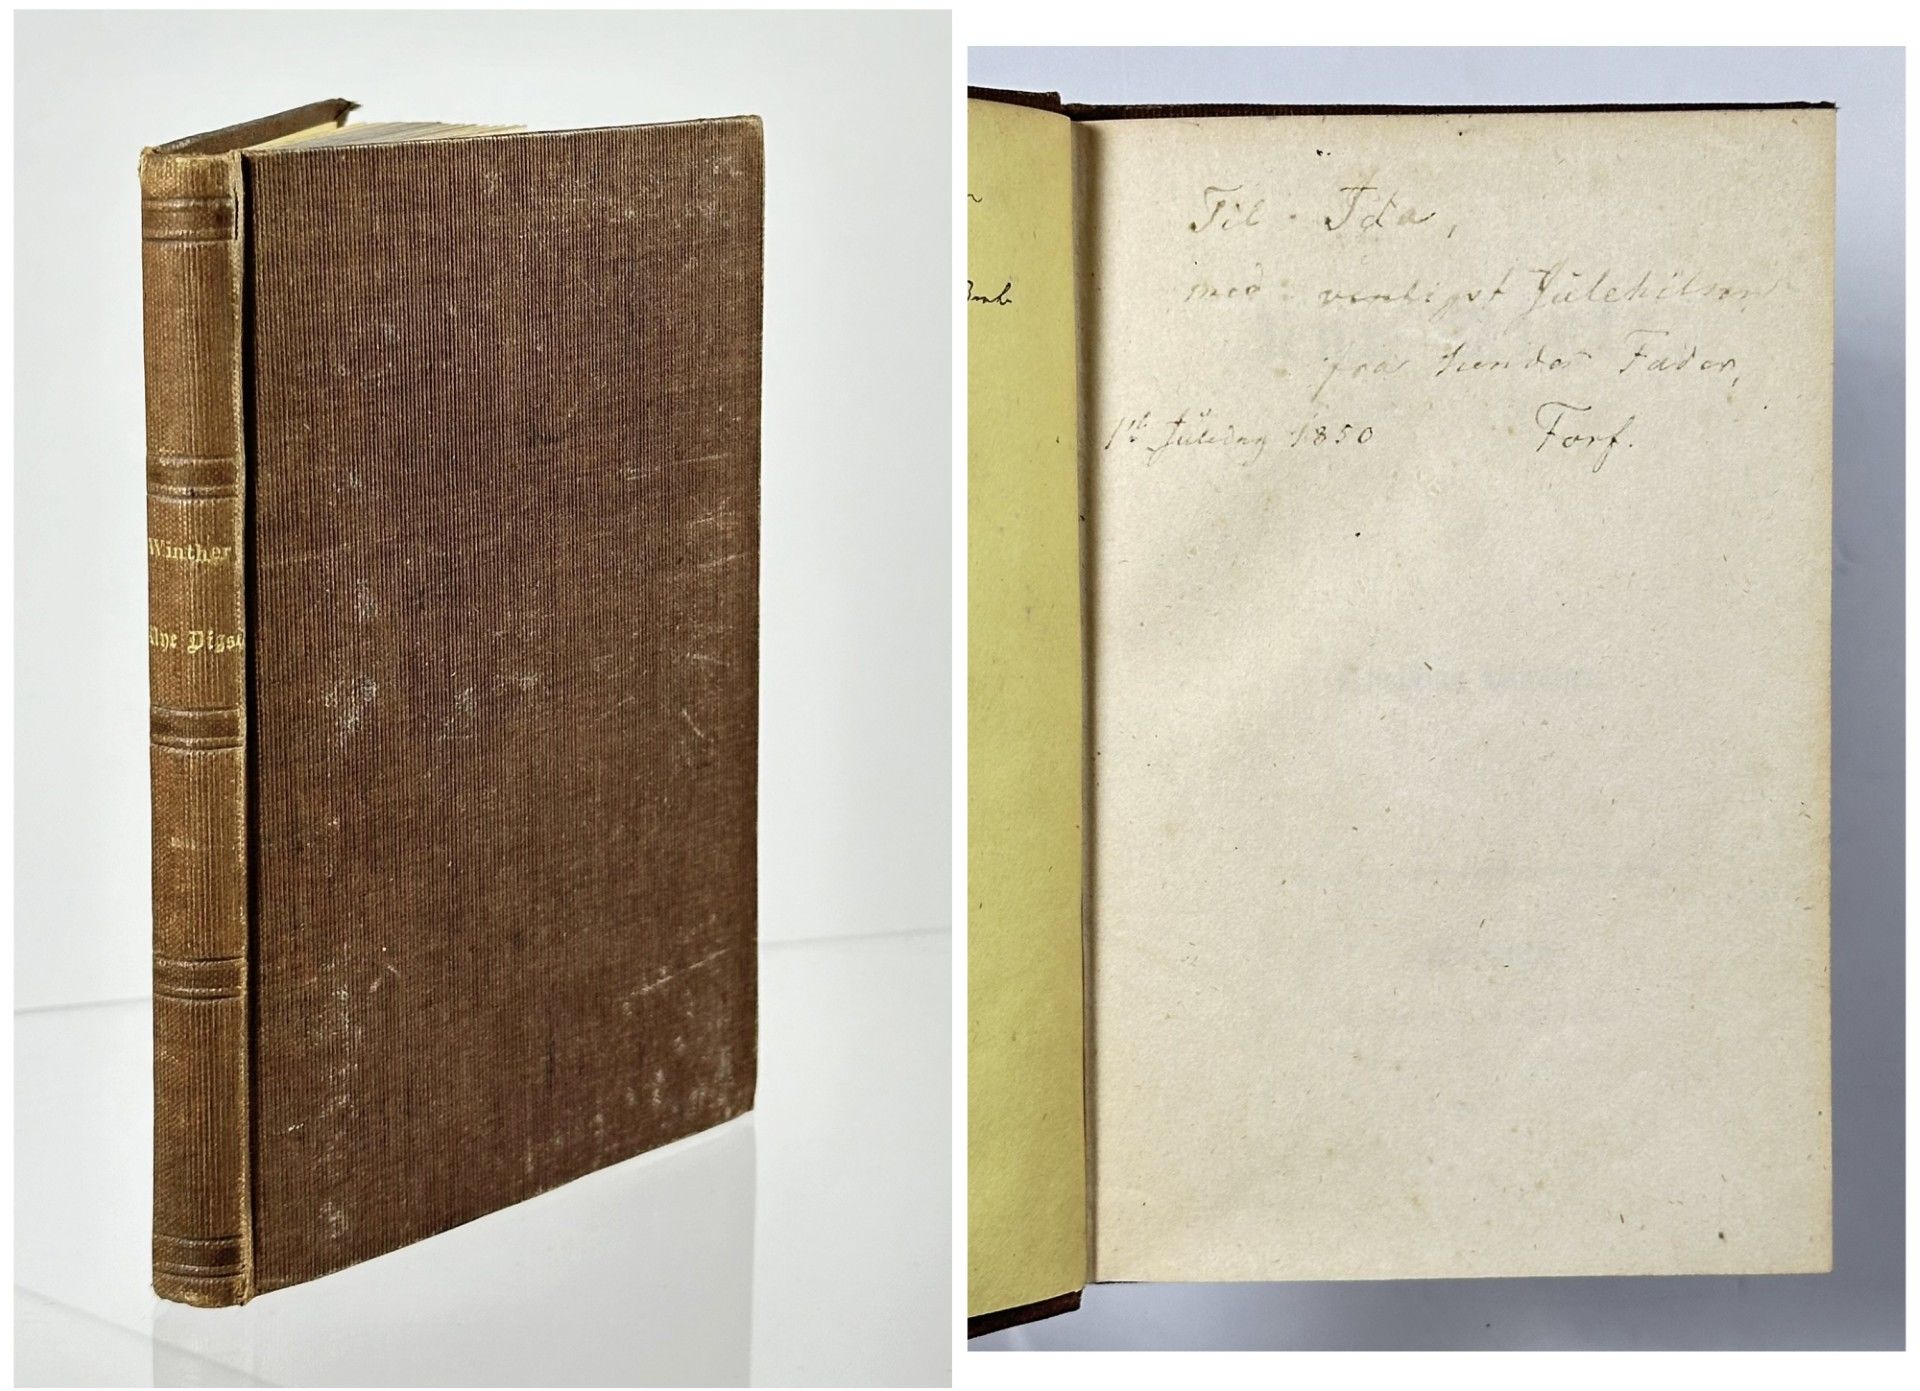 Winther
Nye Digte
Til Ida,
med venligst Julehilsen
fra hendes Fader,
1st Juledag 1850 Forf.